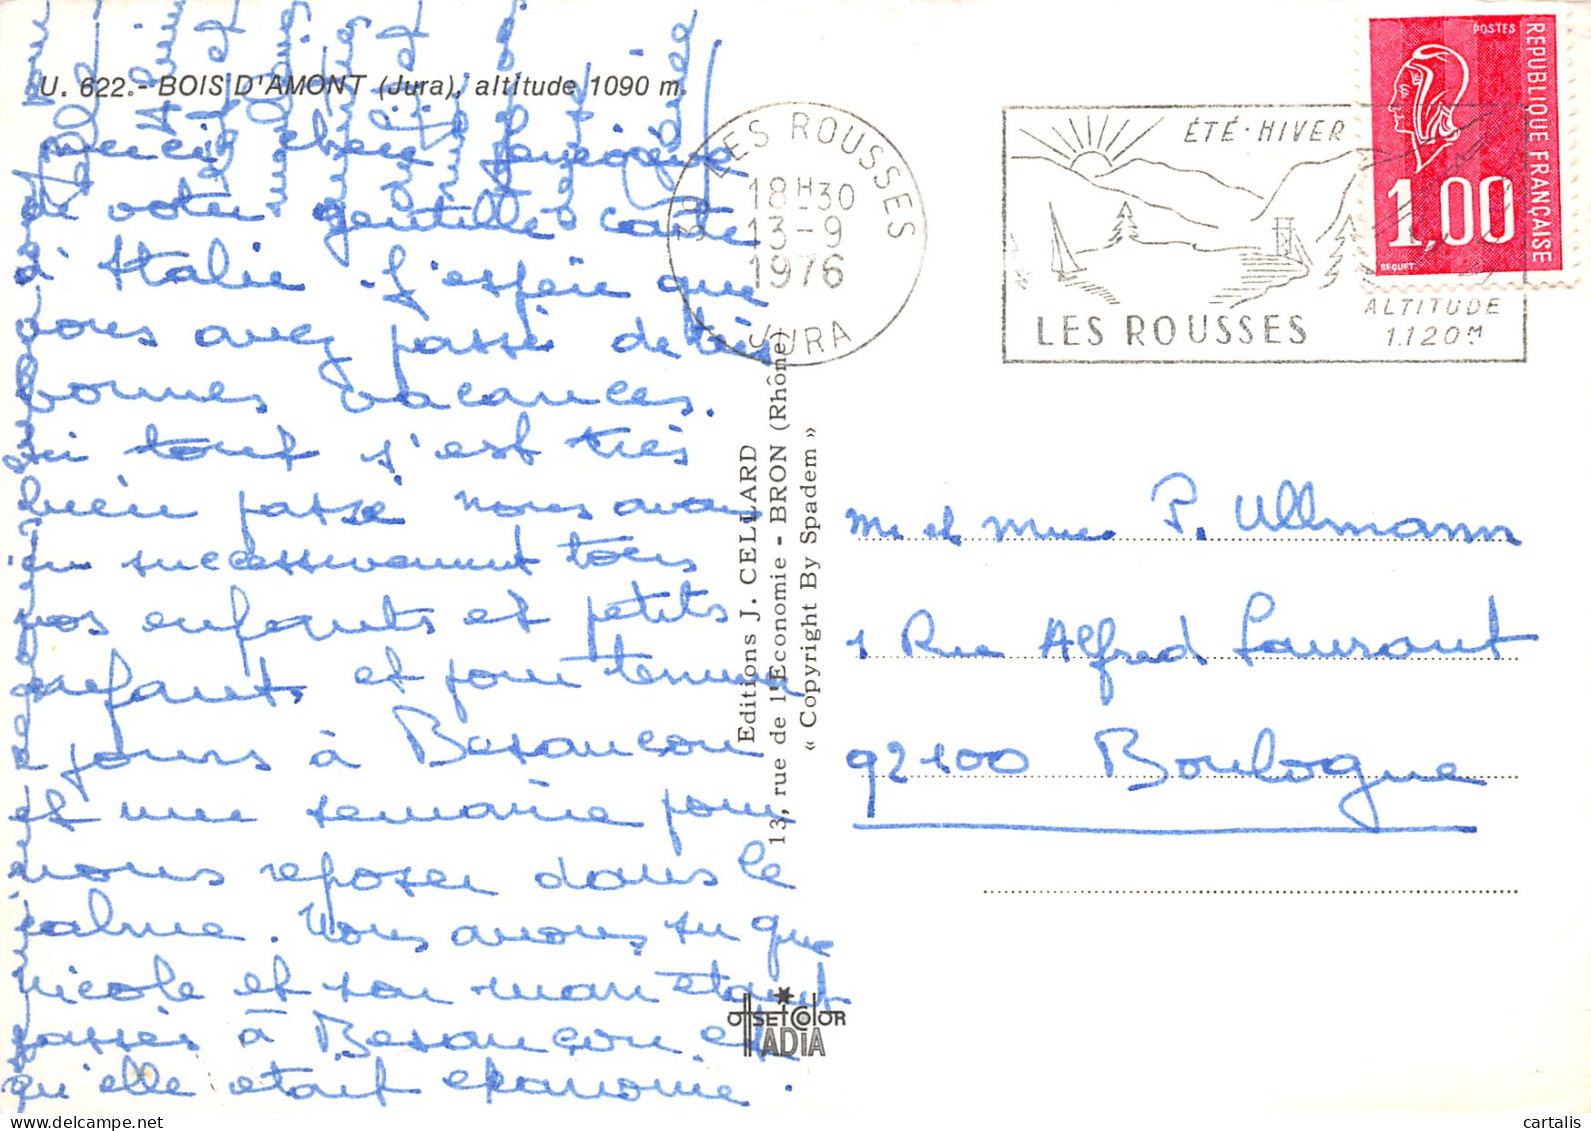 U. 622.- BOIS D'AMONT (Jura), altitude 1090 m.
merci chère
de votre gentille carte
d'Italie. J'espère que
vous avez passé de très
bonnes vacances.
ici tout s'est très
bien passé nous avons
eu successivement tous
nos enfants et petits
enfants et pour terminer
jours à Besançon
et une semaine pour
nous reposer dans le
calme. Nous avons su que
Nicole et son mari etaient
passés à Besançon et
qu'elle etait
39 LES ROUSSES
18H30
13-9
1976
JURA
ÉTÉ-HIVER
LES ROUSSES
ALTITUDE
1.120M
POSTES
REPUBLIQUE FRANÇAISE
1,00
BEQUET
Editions J. CELLARD
13, rue de l'Economie - BRON (Rhône)
« Copyright By Spadem »
OffSEt COlOR
ADiA
Mr et Mme P. Ullmann
1 Rue Alfred Laurant
92100 Boulogne
www.delcampe.net
cartalis